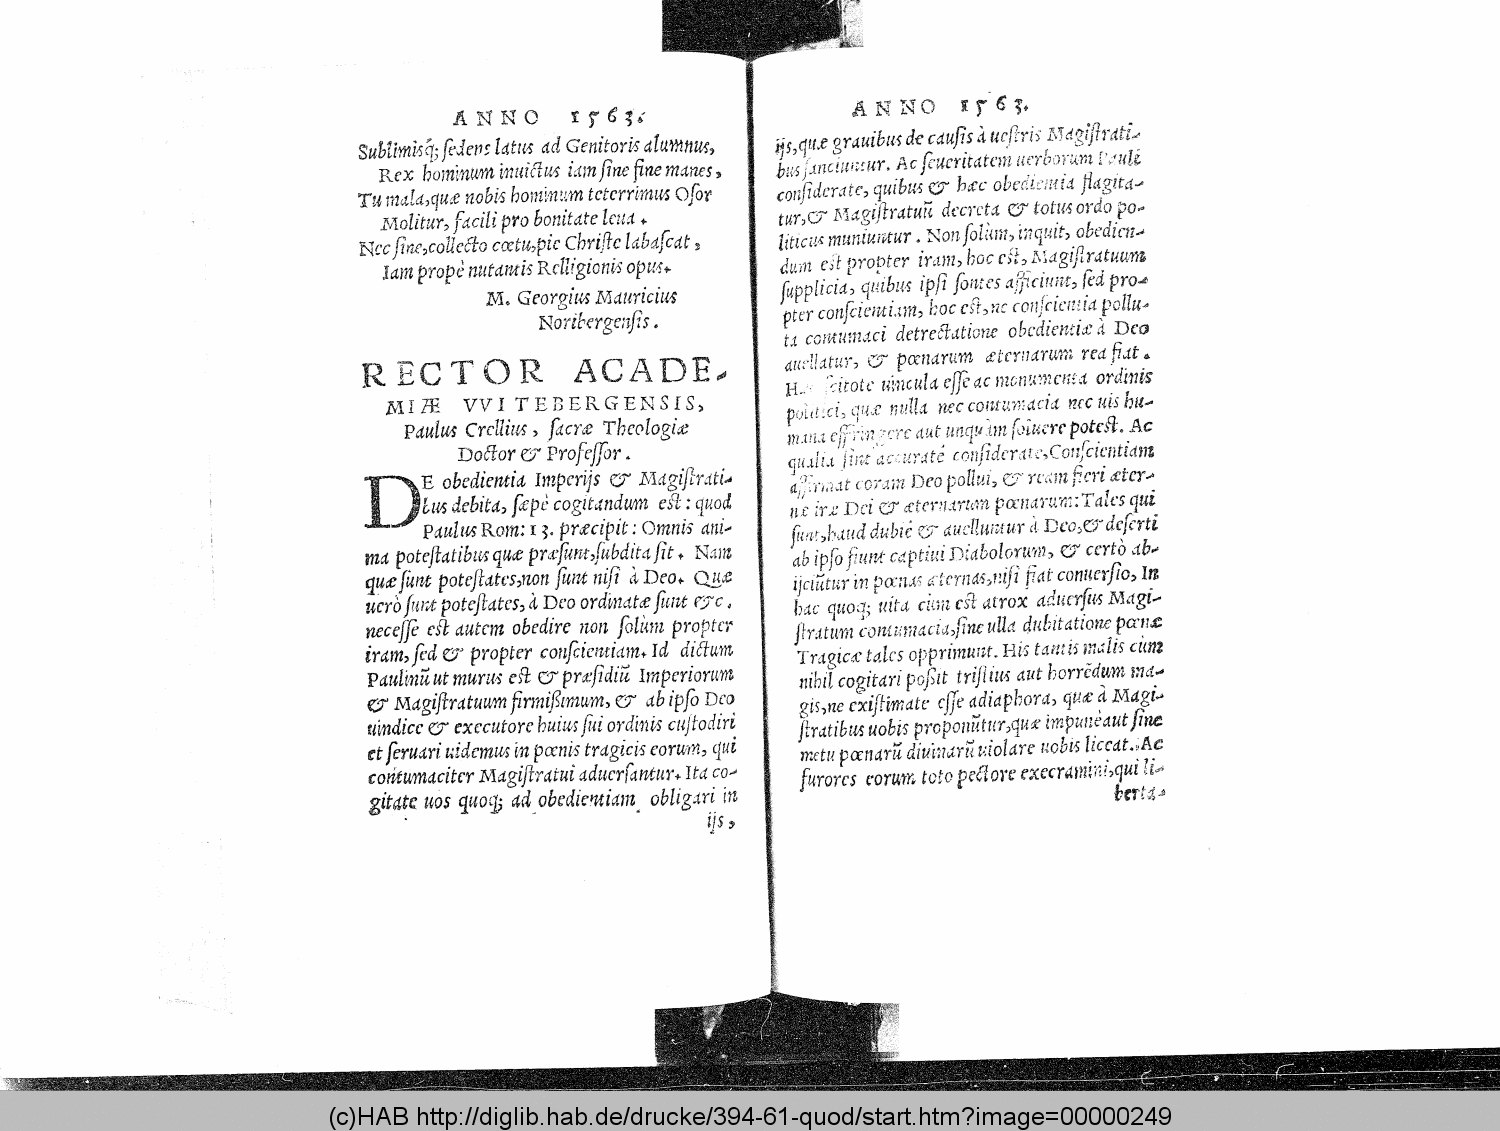 ANNO 1563.
Sublimisq́; ſedens latus ad Genitoris alumnus,
Rex hominum inuictus iam ſine fine manes,
Tu mala,quæ nobis hominum teterrimus Oſor
Molitur, facili pro bonitate leua.
Nec ſine,collecto cœtu,pie Chriſte labaſcat,
Iam propè nutantis Relligionis opus.
M. Georgius Mauricius
Noribergenſis.
RECTOR ACADE-
MIÆ VVITEBERGENSIS,
Paulus Crellius, ſacræ Theologiæ
Doctor & Profeſſor.
DE obedientia Imperijs & Magiſtrati-
bus debita, ſæpè cogitandum eſt: quod
Paulus Rom: 13. præcipit: Omnis ani-
ma poteſtatibus quæ præſunt,ſubdita ſit. Nam
quæ ſunt poteſtates,non ſunt niſi à Deo. Quæ
uerò ſunt poteſtates, à Deo ordinatæ ſunt &c.
neceſſe eſt autem obedire non ſolùm propter
iram, ſed & propter conſcientiam. Id dictum
Paulinũ ut murus eſt & præſidiũ Imperiorum
& Magiſtratuum firmißimum, & ab ipſo Deo
uindice & executore huius ſui ordinis cuſtodiri
et ſeruari uidemus in pœnis tragicis eorum, qui
contumaciter Magiſtratui aduerſantur. Ita co-
gitate uos quoq; ad obedientiam obligari in
ijs,
ANNO 1563.
ijs,quæ grauibus de cauſis à ueſtris Magiſtrati-
bus ſanciuntur. Ac ſeueritatem uerborum Pauli
conſiderate, quibus & hæc obedientia flagita-
tur,& Magiſtratuũ decreta & totus ordo po-
liticus muniuntur. Non ſolùm, inquit, obedien-
dum eſt propter iram, hoc eſt, Magiſtratuum
ſupplicia, quibus ipſi ſontes afficiunt, ſed pro-
pter conſcientiam, hoc eſt,ne conſcientia pollu-
ta contumaci detrectatione obedientiæ à Deo
auellatur, & pœnarum æternarum rea fiat.
ſcitote uincula eſſe ac monumenta ordinis
politici, quæ nulla nec contumacia nec uis hu-
mana effringere aut unquàm ſoluere poteſt. Ac
qualia ſint accuratè conſiderate,Conſcientiam
affirmat coram Deo pollui, & ream fieri æter-
næ iræ Dei & æternarum pœnarum: Tales qui
ſunt,haud dubiè & auelluntur à Deo,& deſerti
ab ipſo fiunt captiui Diabolorum, & certò ab-
ijciũtur in pœnas æternas,niſi fiat conuerſio, In
hac quoq; uita cùm eſt atrox aduerſus Magi-
ſtratum contumacia,ſine ulla dubitatione pœnæ
Tragicæ tales opprimunt. His tantis malis cùm
nihil cogitari poßit triſtius aut horrẽdum ma-
gis,ne exiſtimate eſſe adiaphora, quæ à Magi-
ſtratibus uobis proponũtur,quæ impunè aut ſine
metu pœnarũ diuinarũ uiolare uobis liceat. Ac
furores eorum toto pectore execramini,qui li-
berta-
(c)HAB http://diglib.hab.de/drucke/394-61-quod/start.htm?image=00000249